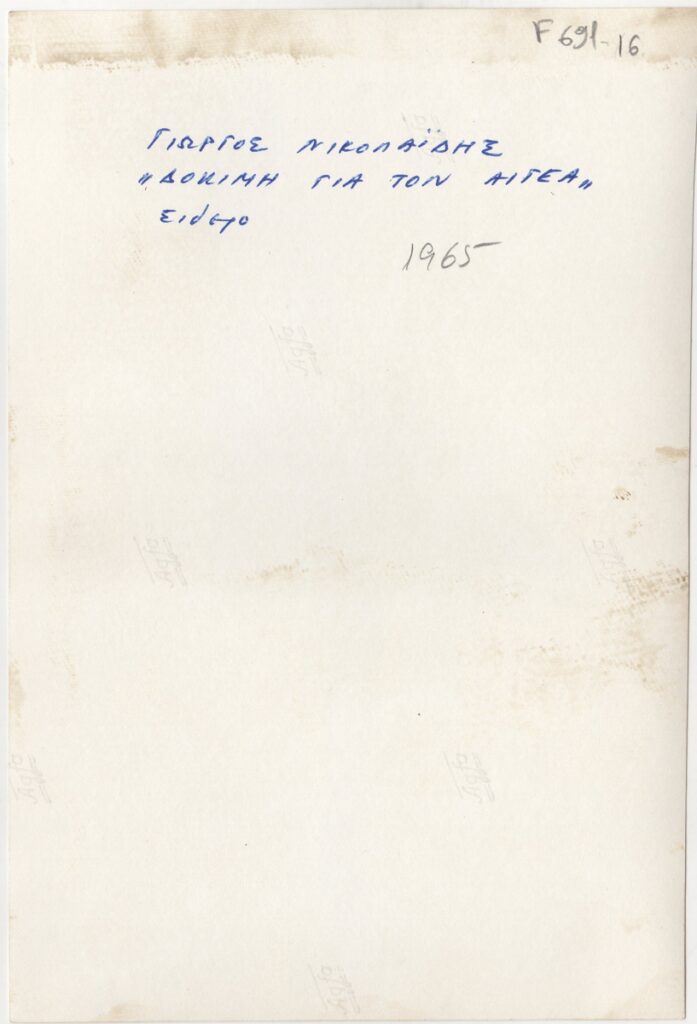 F691-16
ΓΙΩΡΓΟΣ ΝΙΚΟΛΑΪΔΗΣ
"ΔΟΚΙΜΗ ΓΙΑ ΤΟΝ ΑΙΓΕΑ„
Σίδερο
1965
Agfa
Agfa
Agfa
Agfa
Agfa
Agfa